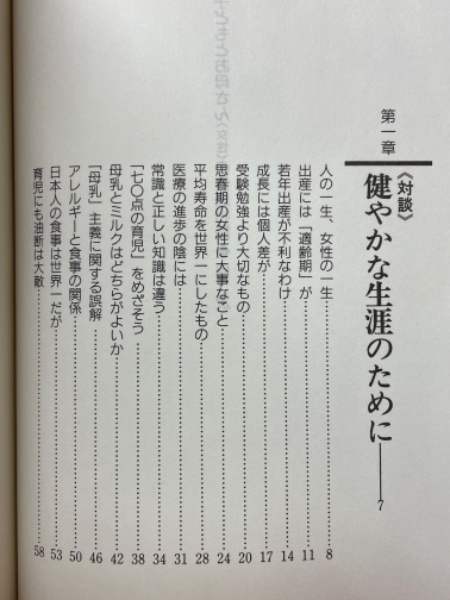 第一章
《対談》
健やかな生涯のために――7
人の一生、女性の一生……8
出産には「適齢期」が……11
若年出産が不利なわけ……14
成長には個人差が……17
受験勉強より大切なもの……20
思春期の女性に大事なこと……24
平均寿命を世界一にしたもの……28
医療の進歩の陰には……31
常識と正しい知識は違う……34
「七〇点の育児」をめざそう……38
母乳とミルクはどちらがよいか……42
「母乳」主義に関する誤解……46
アレルギーと食事の関係……50
日本人の食事は世界一だが……53
育児にも油断は大敵……58